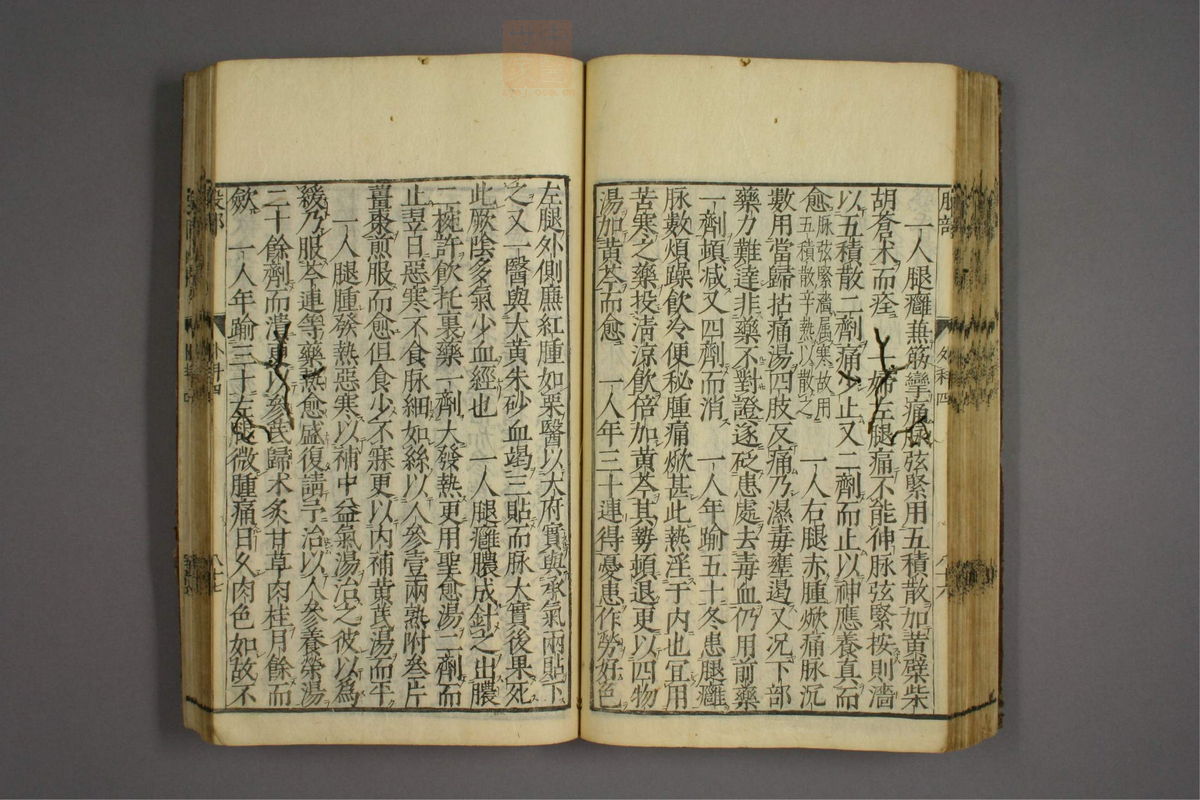 一人腿癰兼筋攣痛脉弦緊用五積散加黃蘗柴
胡蒼术而痊　一婦左腿痛不能伸脉弦緊按則濇
以五積散二劑痛少止又二劑而止以神應養真而
愈脉弦緊濇屬寒故用五積散辛熱以散之　一人右腿赤腫焮痛脉沉
數用當歸拈痛湯四肢反痛乃濕毒壅遏又况下部
藥力難達非藥不對證遂砭患處去毒血仍用前藥
一劑頓减又四劑而消　一人年踰五十冬患腿癰
脉數煩躁飲冷便秘腫痛焮甚此熱淫于内也宜用
苦寒之藥投清凉飲倍加黃芩其勢頓退更以四物
湯加黃芩而愈　一人年三十連得憂患作勞好色
左腿外側廉紅腫如栗醫以大府實與承氣兩貼下
之又一醫與大黃朱砂血竭三貼而脉大實後果死
此厥陰多氣少血經也　一人腿癰膿成針之出膿
二椀許飲托裏藥一劑大發熱更用聖愈湯二劑而
止翌日惡寒不食脉細如絲以人參壹兩熟附叁片
薑棗煎服而愈但食少不寐更以内補黃芪湯而平
一人腿腫發熱惡寒以補中益氣湯治之彼以爲
緩乃服芩連等藥熱愈盛復請予治以人參養榮湯
二十餘劑而潰更以參芪歸术炙甘草肉桂月餘而
斂　一人年踰三十左腿微腫痛日久肉色如故不
外科四
八十七